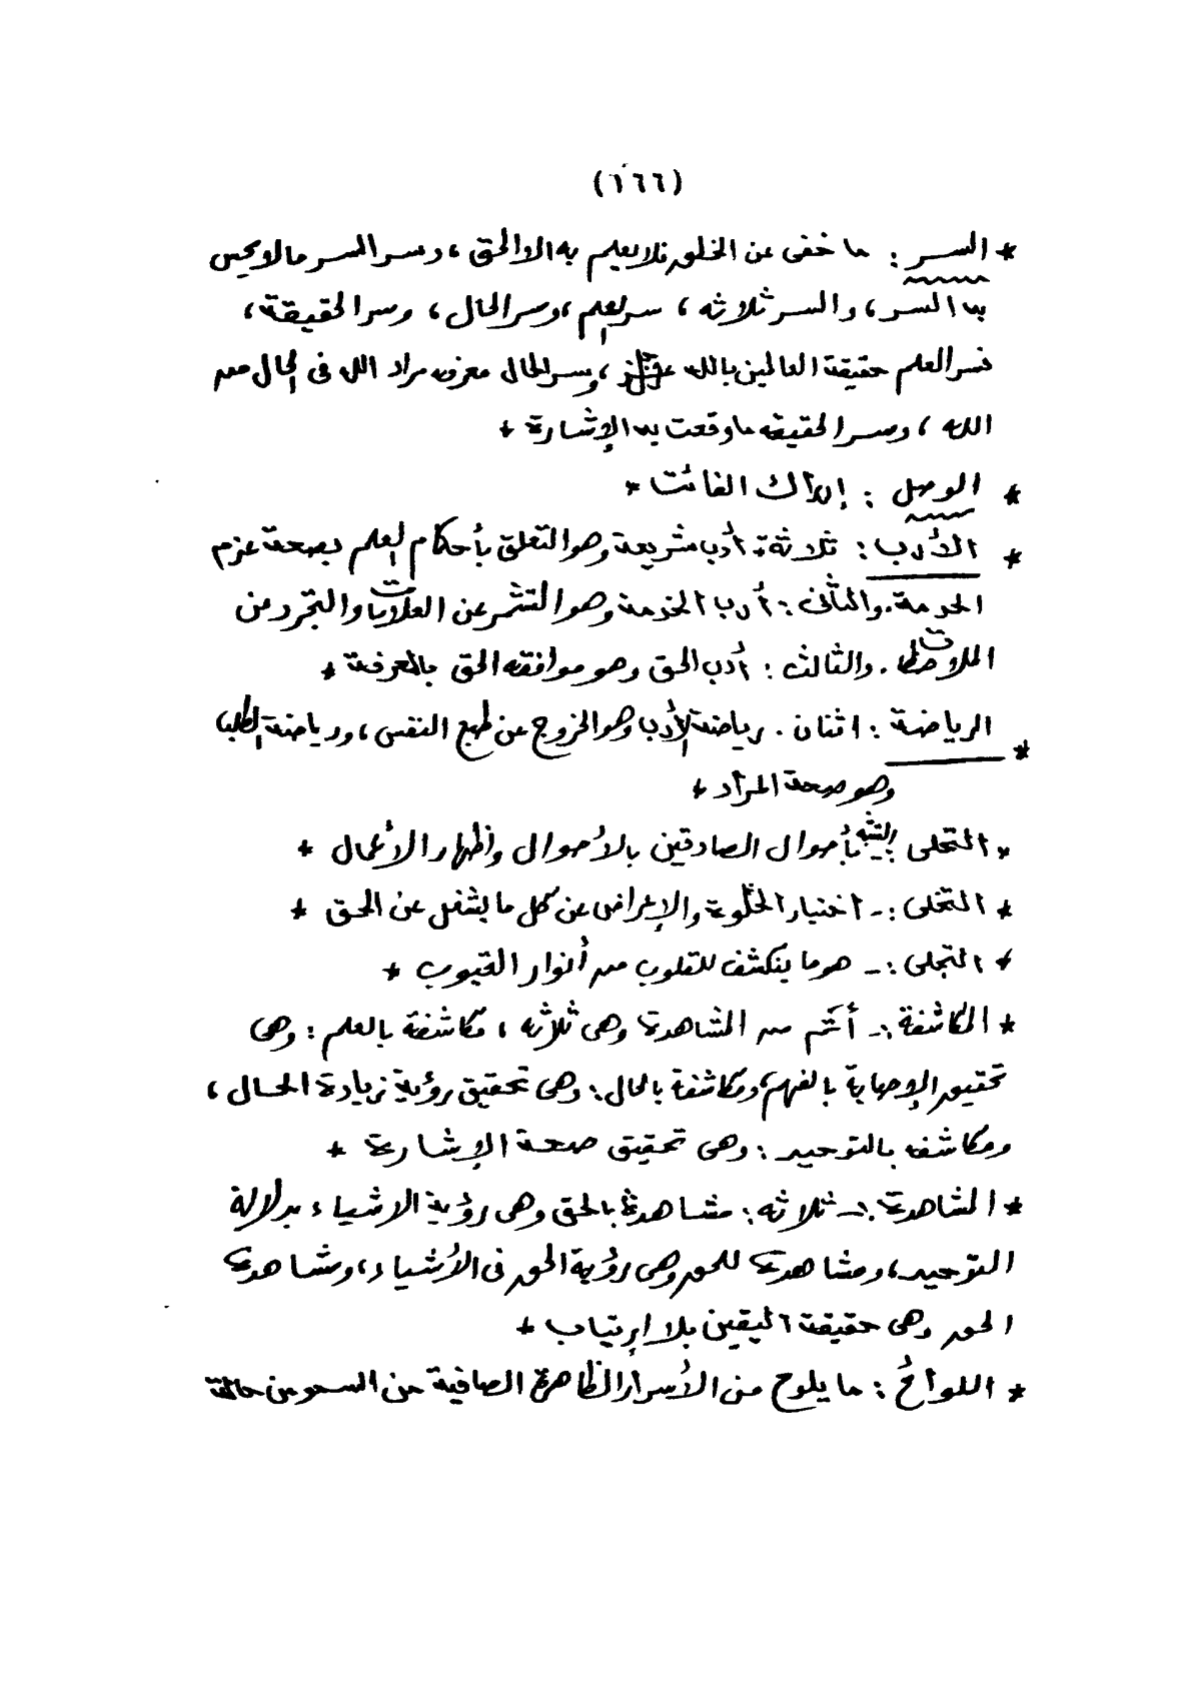 (١٦٦)
* السر : ما خفى عن الخلق فلا يعلم به الا الحق ، وسر السر مالا يحس
به السر ، والسر ثلاثه ، سر العلم ، وسر الحال ، وسر الحقيقة ،
فسر العلم حقيقة العالمين بالله عز وجل ، وسر الحال معرفه مراد الله فى الحال من
الله ، وسر الحقيقه ما وقعت به الإشارة *
* الوصل : إدراك الفائت *
* الأدب : ثلاثة : أدب شريعة وهو التعلق بأحكام العلم بصحة عزم
الخدمة . والثانى : أدب الخدمة وهو التشمر عن العلامات والتجرد من
الملاحظات . والثالث : أدب الحق وهو موافقه الحق بالمعرفة *
* الرياضة : اثنان . رياضة الأدب وهو الخروج عن طبع النفس ، ورياضة الطلب
وهو صحة المراد *
* التحلى : التشبه بأحوال الصادقين بالأحوال وإظهار الأعمال *
* التخلى :- اختيار الخلوة والإعراض عن كل ما يشغل عن الحق *
* التجلى :- هو ما ينكشف للقلوب من أنوار الغيوب *
* المكاشفة :- أتم من المشاهدة وهى ثلاثه ، مكاشفة بالعلم : وهى
تحقيق الإصابة بالفهم ، ومكاشفة بالحال : وهى تحقيق رؤية زيادة الحال ،
ومكاشفه بالتوحيد : وهى تحقيق صحة الإشارة *
* المشاهدة :- ثلاثه : مشاهدة بالحق وهى رؤية الاشياء بدلالة
التوحيد ، ومشاهدة للحق وهى رؤية الحق فى الأشياء ، ومشاهدة
الحق وهى حقيقة اليقين بلا إرتياب *
* اللوائح : ما يلوح من الأسرار الظاهرة الصافية من السمو من حالة